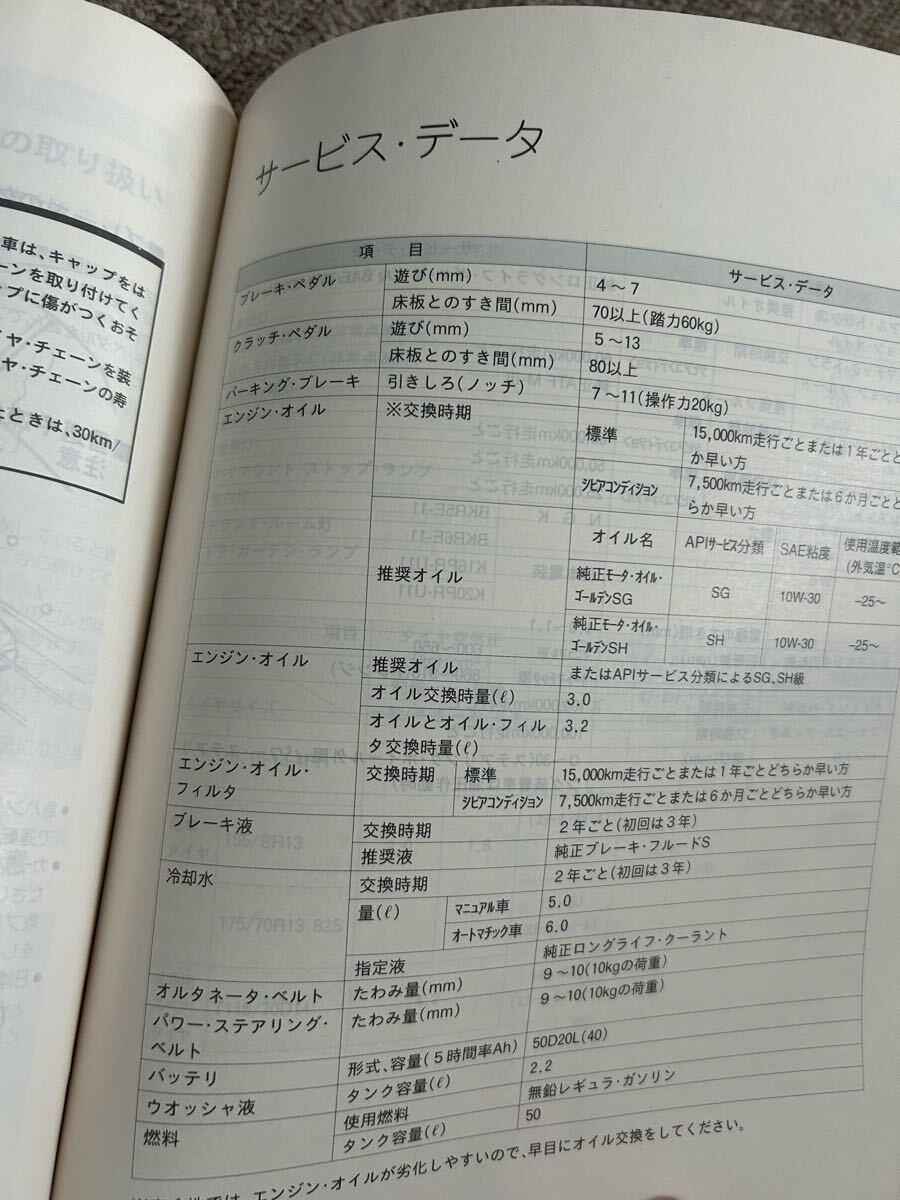 の取り扱い
車は、キャップをは
ーンを取り付けてく
ップに傷がつくおそ
イヤ・チェーンを装
ヤ・チェーンの寿
たときは、30km/
サービス・データ
項 目 サービス・データ
ブレーキ・ペダル 遊び(mm) 4～7
床板とのすき間(mm) 70以上(踏力60kg)
クラッチ・ペダル 遊び(mm) 5～13
床板とのすき間(mm) 80以上
パーキング・ブレーキ 引きしろ(ノッチ) 7～11(操作力20kg)
エンジン・オイル ※交換時期 標準 15,000km走行ごとまたは1年ごとと
か早い方
シビアコンディション 7,500km走行ごとまたは6か月ごとと
らか早い方
推奨オイル オイル名 APIサービス分類 SAE粘度 使用温度範
(外気温℃
純正モータ・オイル・
ゴールデンSG SG 10W-30 –25～
純正モータ・オイル・
ゴールデンSH SH 10W-30 –25～
エンジン・オイル 推奨オイル またはAPIサービス分類によるSG、SH級
オイル交換時量(ℓ) 3.0
オイルとオイル・フィル
タ交換時量(ℓ) 3.2
エンジン・オイル・
フィルタ 交換時期 標準 15,000km走行ごとまたは1年ごとどちらか早い方
シビアコンディション 7,500km走行ごとまたは6か月ごとどちらか早い方
ブレーキ液 交換時期 2年ごと(初回は3年)
推奨液 純正ブレーキ・フルードS
冷却水 交換時期 2年ごと(初回は3年)
量(ℓ) マニュアル車 5.0
オートマチック車 6.0
指定液 純正ロングライフ・クーラント
オルタネータ・ベルト たわみ量(mm) 9～10(10kgの荷重)
パワー・ステアリング・
ベルト たわみ量(mm) 9～10(10kgの荷重)
バッテリ 形式、容量(5時間率Ah) 50D20L(40)
ウオッシャ液 タンク容量(ℓ) 2.2
燃料 使用燃料 無鉛レギュラ・ガソリン
タンク容量(ℓ) 50
では、エンジン・オイルが劣化しやすいので、早目にオイル交換をしてください。